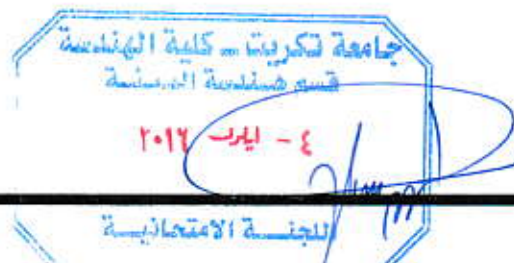 جامعة تكريت - كلية الهندسة
قسم هندسة البيئة
٤ - ايلول ٢٠١٦
اللجنة الامتحانية